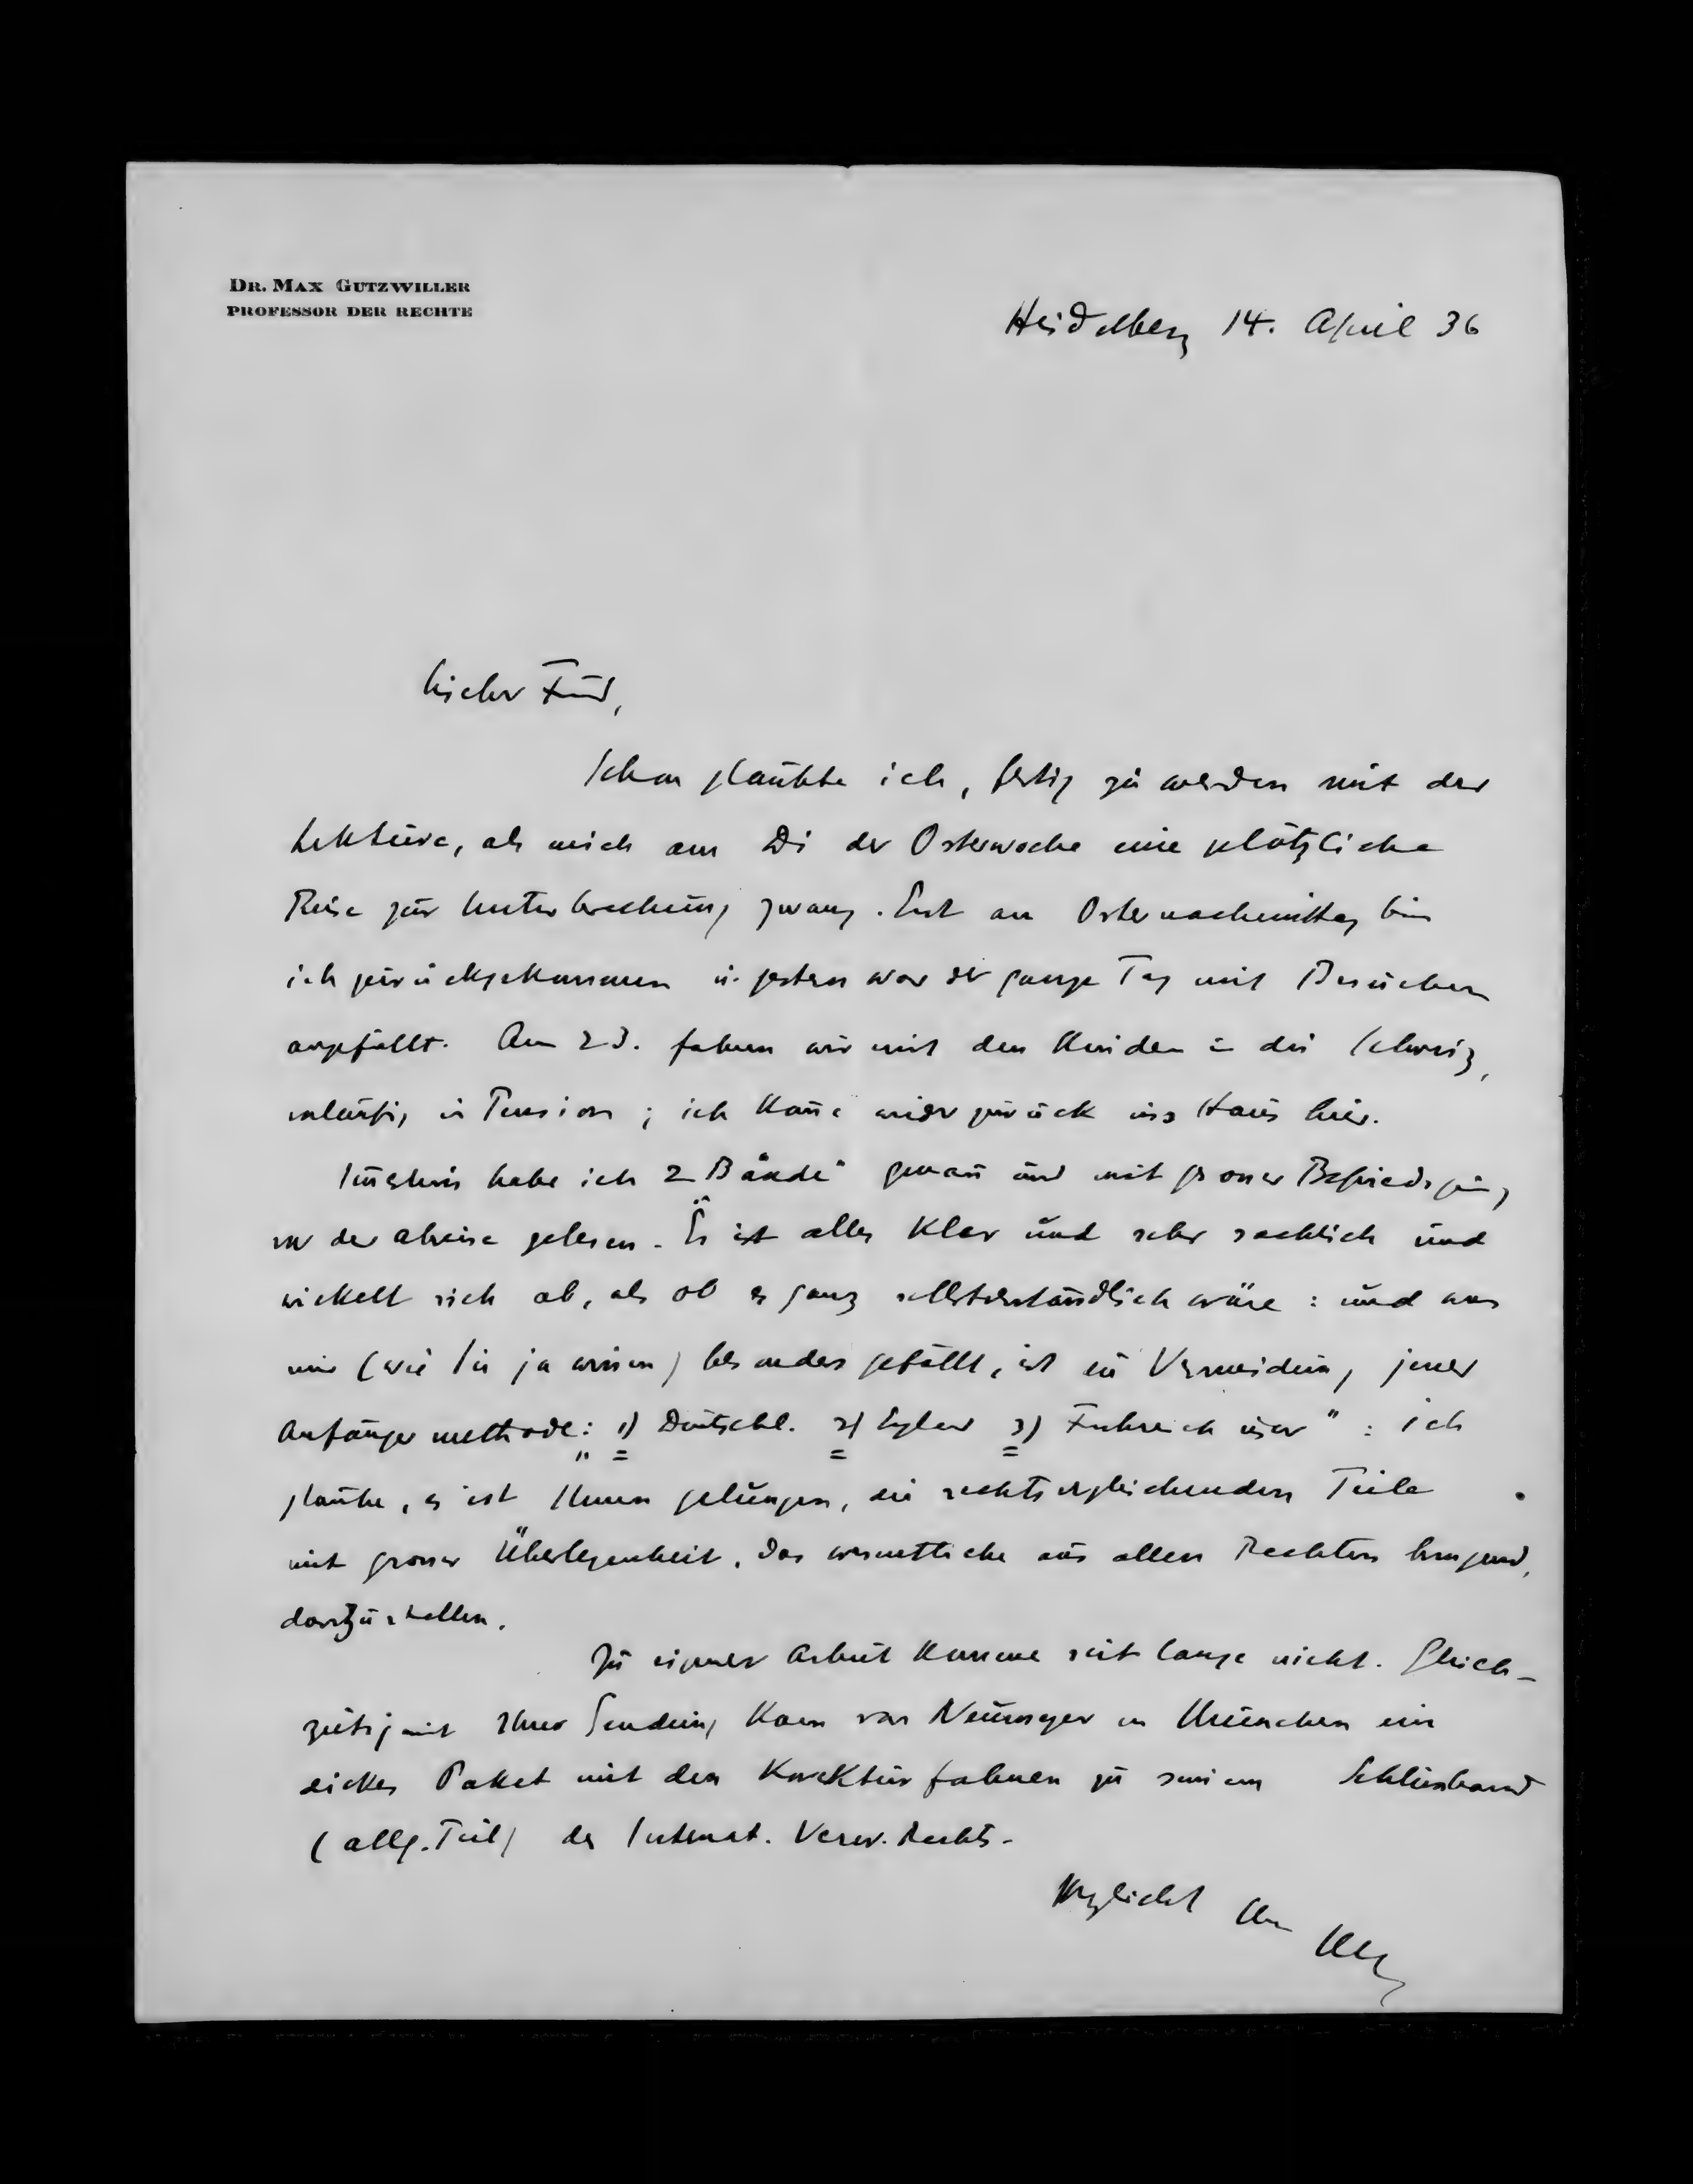 DR. MAX GUTZWILLER
PROFESSOR DER RECHTE
Heidelberg 14. April 36
Lieber Freund,
Schon glaubte ich, fertig zu werden mit der
Lektüre, als mich am Di der Osterwoche eine plötzliche
Reise zur Unterbrechung zwang. Erst am Osternachmittag bin
ich zurückgekommen u. gestern war der ganze Tag mit Besuchen
angefüllt. Am 23. fahren wir mit den Kindern in die Schweiz,
vorläufig in Pension; ich komme wieder zurück ins Haus hier.
Immerhin habe ich 2 "Bände" genau und mit grosser Befriedigung
vor der Abreise gelesen. Es ist alles klar und sehr sachlich und
wickelt sich ab, als ob es ganz selbstverständlich wäre: und was
mir (wie Sie ja wissen) besonders gefällt, ist die Vermeidung jener
Anfängermethode: „1) Deutschl. 2) England 3) Frankreich usw": ich
glaube, es ist Ihnen gelungen, die rechtsvergleichenden Teile
mit grosser Überlegenheit, das wesentliche aus allen Rechten bringend,
darzustellen.
Zu eigener Arbeit komme seit lange nicht. Gleich-
zeitig mit Ihrer Sendung kam von Neumeyer in München ein
dickes Paket mit den Korrekturfahnen zu seinem Schlussband
(allg. Teil) des Internat. Verw. Rechts.
Herzlichst Ihr